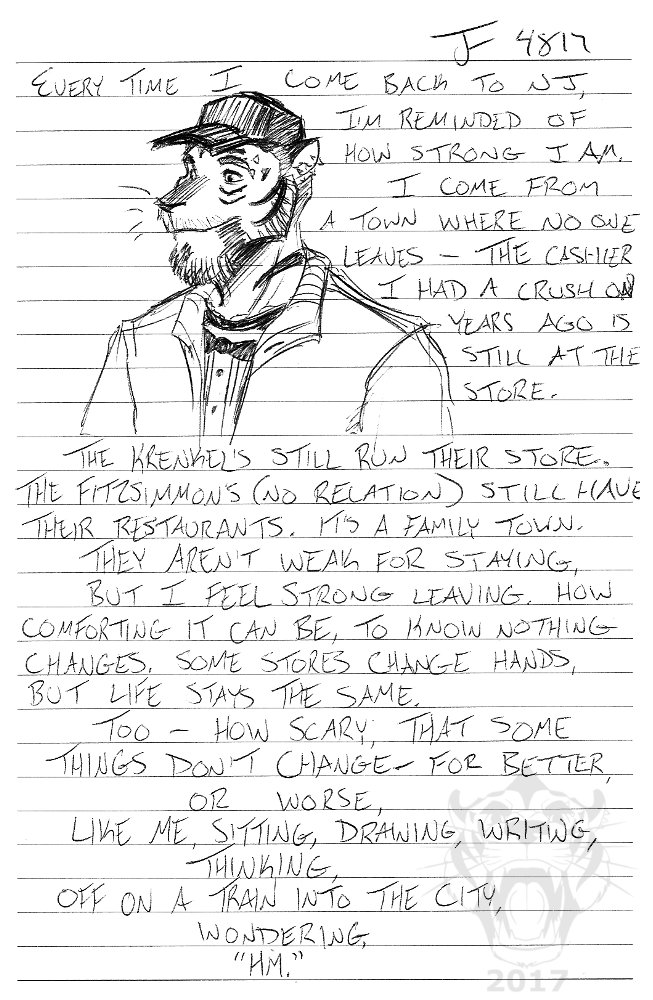 JF 4817
EVERY TIME I COME BACK TO NJ,
I'M REMINDED OF
HOW STRONG I AM.
I COME FROM
A TOWN WHERE NO ONE
LEAVES – THE CASHIER
I HAD A CRUSH ON
YEARS AGO IS
STILL AT THE
STORE.
THE KRENKEL'S STILL RUN THEIR STORE.
THE FITZSIMMON'S (NO RELATION) STILL HAVE
THEIR RESTAURANTS. IT'S A FAMILY TOWN.
THEY AREN'T WEAK FOR STAYING,
BUT I FEEL STRONG LEAVING. HOW
COMFORTING IT CAN BE, TO KNOW NOTHING
CHANGES. SOME STORES CHANGE HANDS,
BUT LIFE STAYS THE SAME.
TOO – HOW SCARY, THAT SOME
THINGS DON'T CHANGE – FOR BETTER,
OR WORSE,
LIKE ME, SITTING, DRAWING, WRITING,
THINKING,
OFF ON A TRAIN INTO THE CITY,
WONDERING,
"HM."
2017